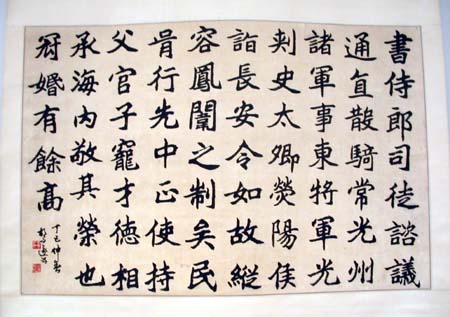 書侍郎司徒諮議
通直散騎常光州
諸軍事東將軍光
刾史太卿熒陽侯
詣長安令如故縱
容鳳闈之制矣民
肯行先中正使持
父官子寵才德相
承海內敬其榮也
冠婚有餘高
丁巳仲春